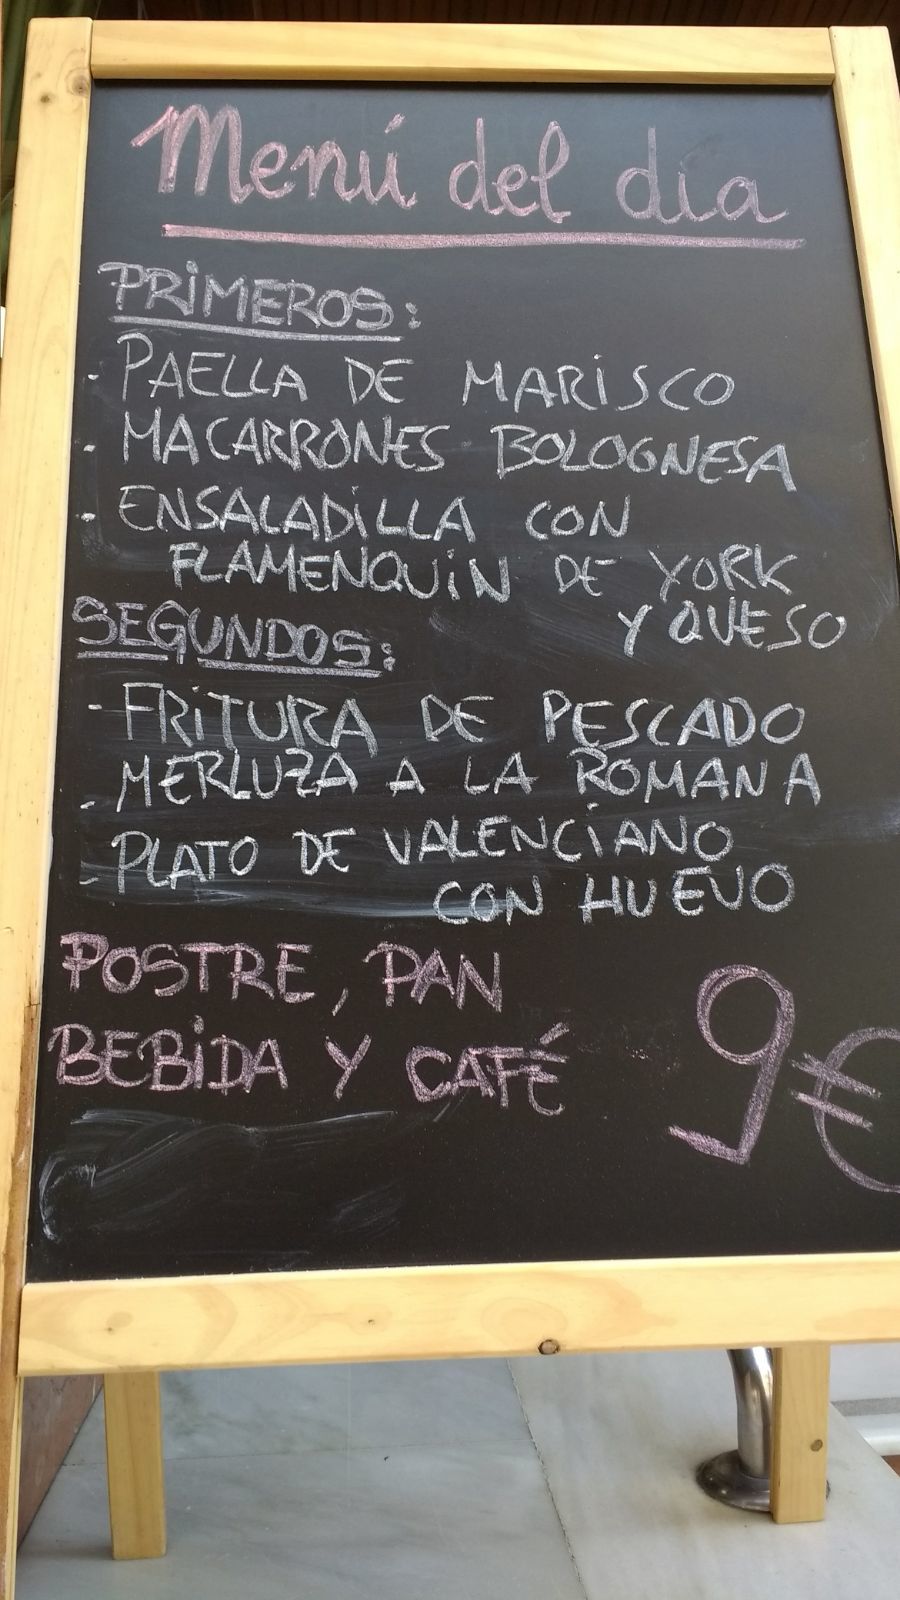 Menú del día
PRIMEROS:
- PAELLA DE MARISCO
- MACARRONES BOLOGNESA
- ENSALADILLA CON
FLAMENQUIN DE YORK
Y QUESO
SEGUNDOS:
- FRITURA DE PESCADO
- MERLUZA A LA ROMANA
- PLATO DE VALENCIANO
CON HUEVO
POSTRE, PAN
BEBIDA Y CAFÉ
9€